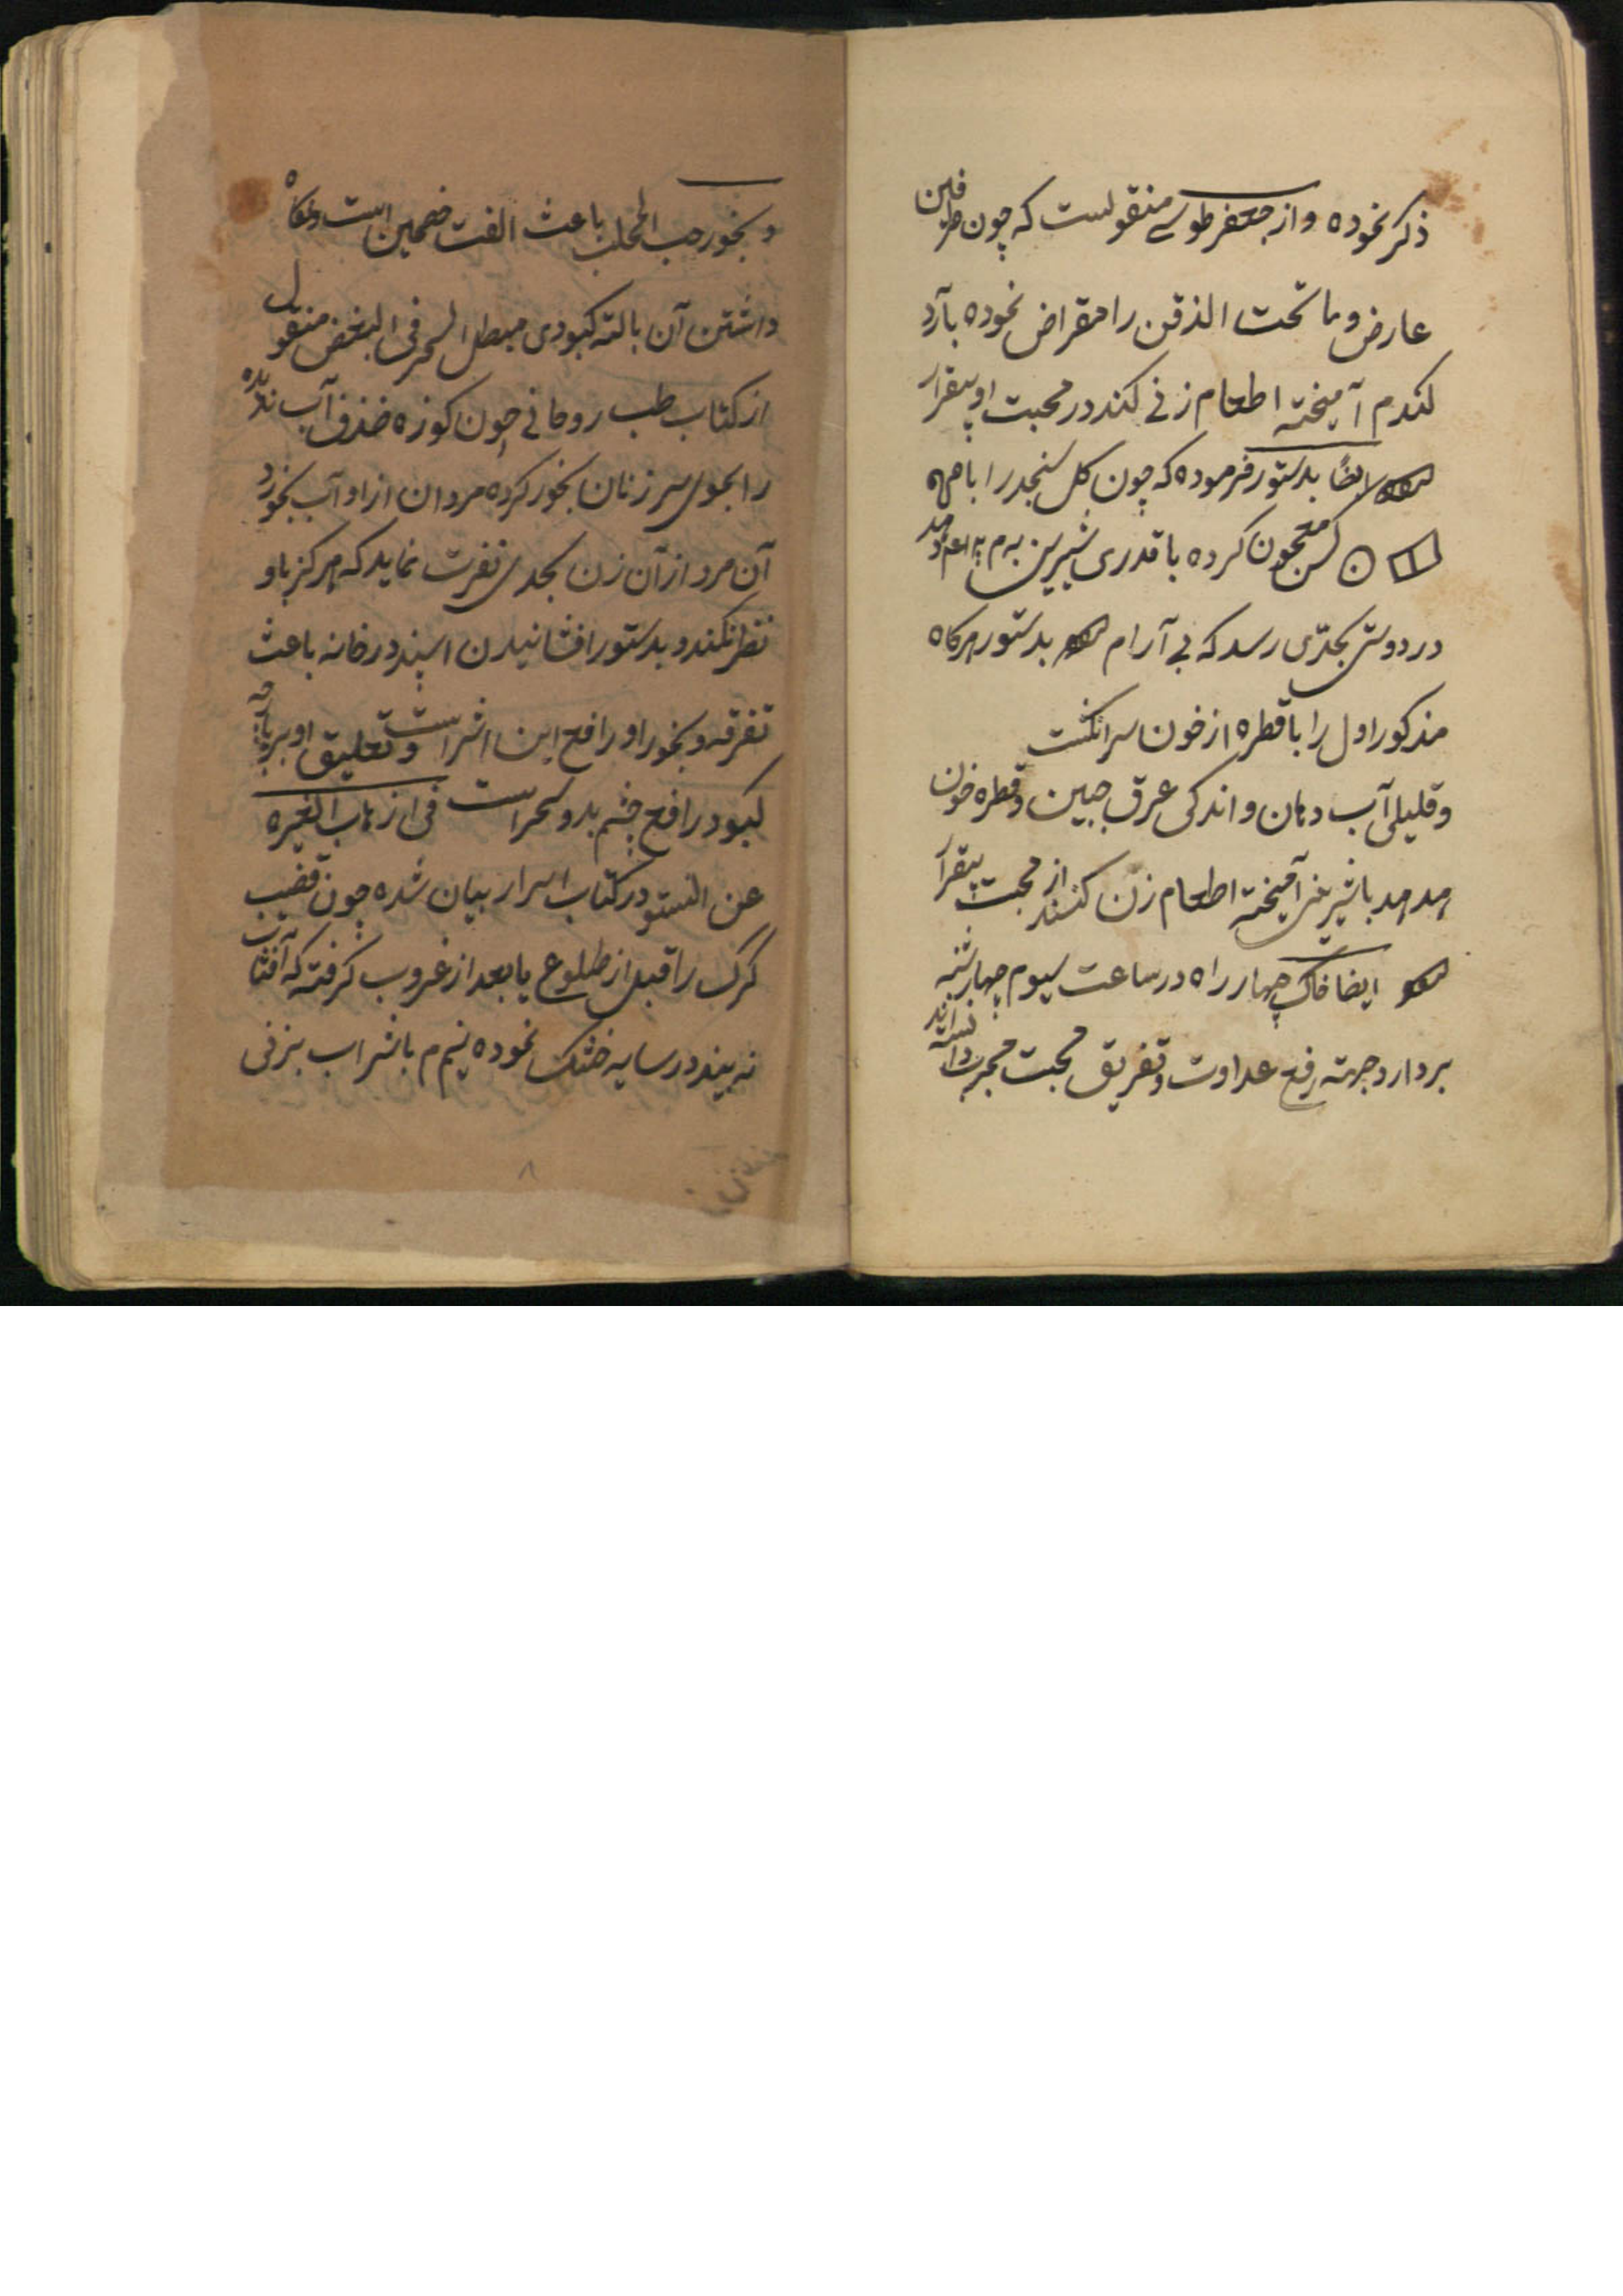 ذکر نموده و از جعفر طوسی منقولست که چون طرفین
عارض و ما تحت الذقن را مقراض نموده بآرد
کندم آمیخته اطعام زنی کند در محبت او بیقرار
ایضا بدستور فرموده که چون کل سنجد را با
معجون کرده با قدری شیرین
در دوستی بحدّی رسد که بی آرام بدستور هرکاه
مذکور اول را با قطره از خون سر انکشت
و قلیلی آب دهان و اندکی عرق جبین و قطره خون
هدهد با شیرینی آمیخته اطعام زن کنند از محبت بیقرار
ایضا خاک چهار راه در ساعت سیوم چهارشنبه
بردارد جهته رفع عداوت و تفریق محبت مجرب دانسته اند
و بخور حب المحلب باعث الفت خصمین است و نکاه
داشتن آن با لته کبودی مبطل السحر فی البغض منقول
از کتاب طب روحانی چون کوزه خذف آب ندیده
را بموی سر زنان بخور کرده مردان از او آب بخورد
آن مرد از آن زن بحدی نفرت نماید که هرکز باو
نظر نکند و بدستور افشانیدن اسپند در خانه باعث
تفرقه و بخور او رافع این اثر است و تعلیق او بر پارچه
کبود رافع چشم بد و سحر است فی ازهاب الغیره
عن النسو در کتاب اسرار بیان شده چون قضیب
کرک را قبل از طلوع یا بعد از غروب کرفته که آفتاب
نه بیند در سایه خشک نموده نیم م با شراب بزنی
۸